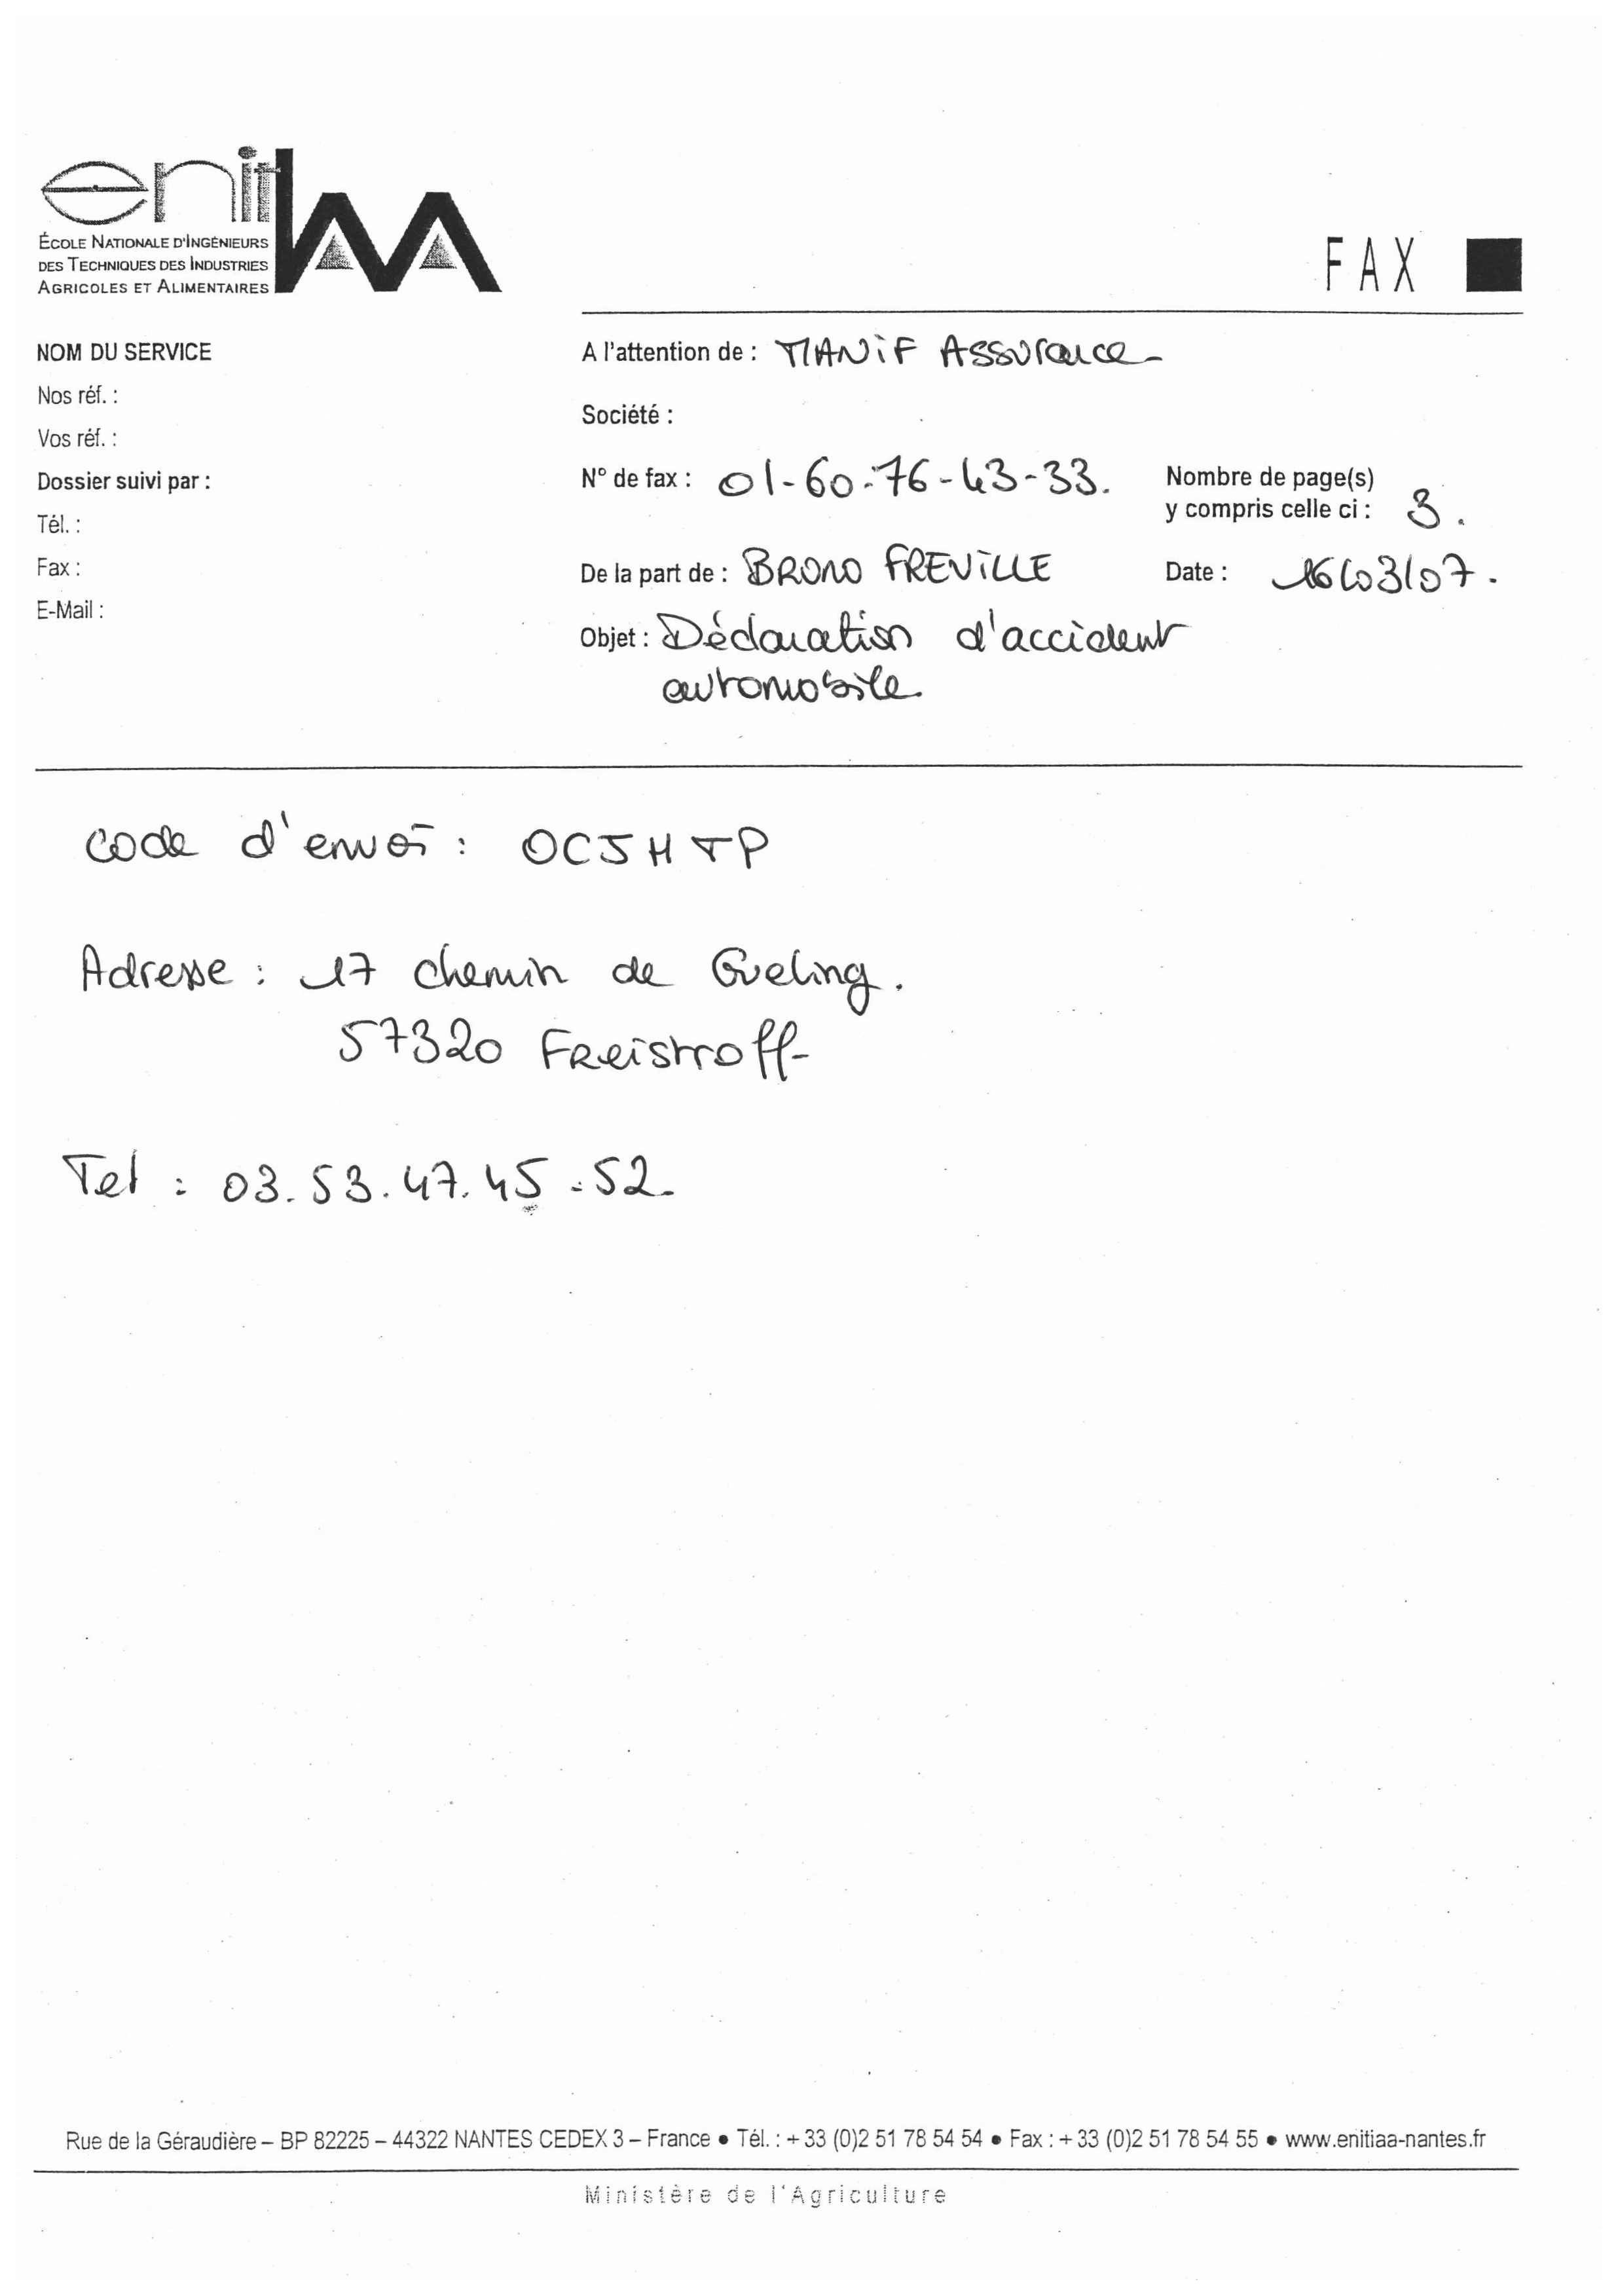 enitIAA
ÉCOLE NATIONALE D'INGÉNIEURS
DES TECHNIQUES DES INDUSTRIES
AGRICOLES ET ALIMENTAIRES
FAX
NOM DU SERVICE
Nos réf. :
Vos réf. :
Dossier suivi par :
Tél. :
Fax :
E-Mail :
A l'attention de : MANiF Assurance
Société :
N° de fax : 01-60-76-43-33.
Nombre de page(s)
y compris celle ci : 3.
De la part de : BRUNO FREViLLE
Date : 16/03/07.
Objet : Déclaration d'accident
automobile.
Code d'envoi : OCJHTP
Adresse : 17 chemin de Gueling.
57320 Freistroff
Tel : 03.53.47.45.52.
Rue de la Géraudière – BP 82225 – 44322 NANTES CEDEX 3 – France • Tél. : + 33 (0)2 51 78 54 54 • Fax : + 33 (0)2 51 78 54 55 • www.enitiaa-nantes.fr
Ministère de l'Agriculture